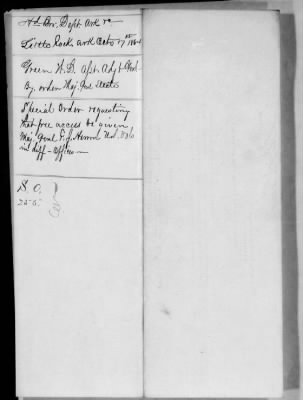 Hd Qrs. Dept. Ark &c
Little Rock Ark Oct 17th 1864
Green W. D. Asst. Adjt. Genl.
By order Maj. Gen Steele
Special Order requesting
that free access be given
Maj Genl F. J. Herron
in diff- offices
S. O.